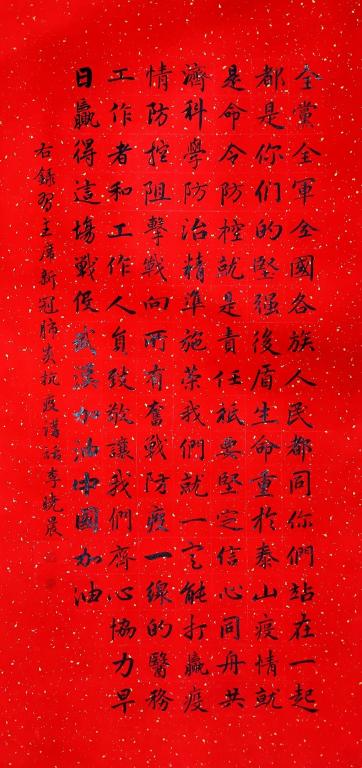 全黨全軍全國各族人民都同你們站在一起
都是你们的堅强後盾生命重於泰山疫情就
是命令防控就是責任祇要堅定信心同舟共
濟科學防治精準施策我們就一定能打贏疫
情防控阻擊戰向所有奮戰防疫一線的醫務
工作者和工作人員致敬讓我們齊心協力早
日贏得這場戰役武漢加油中國加油
右錄習主席新冠肺炎抗疫講話李曉晨